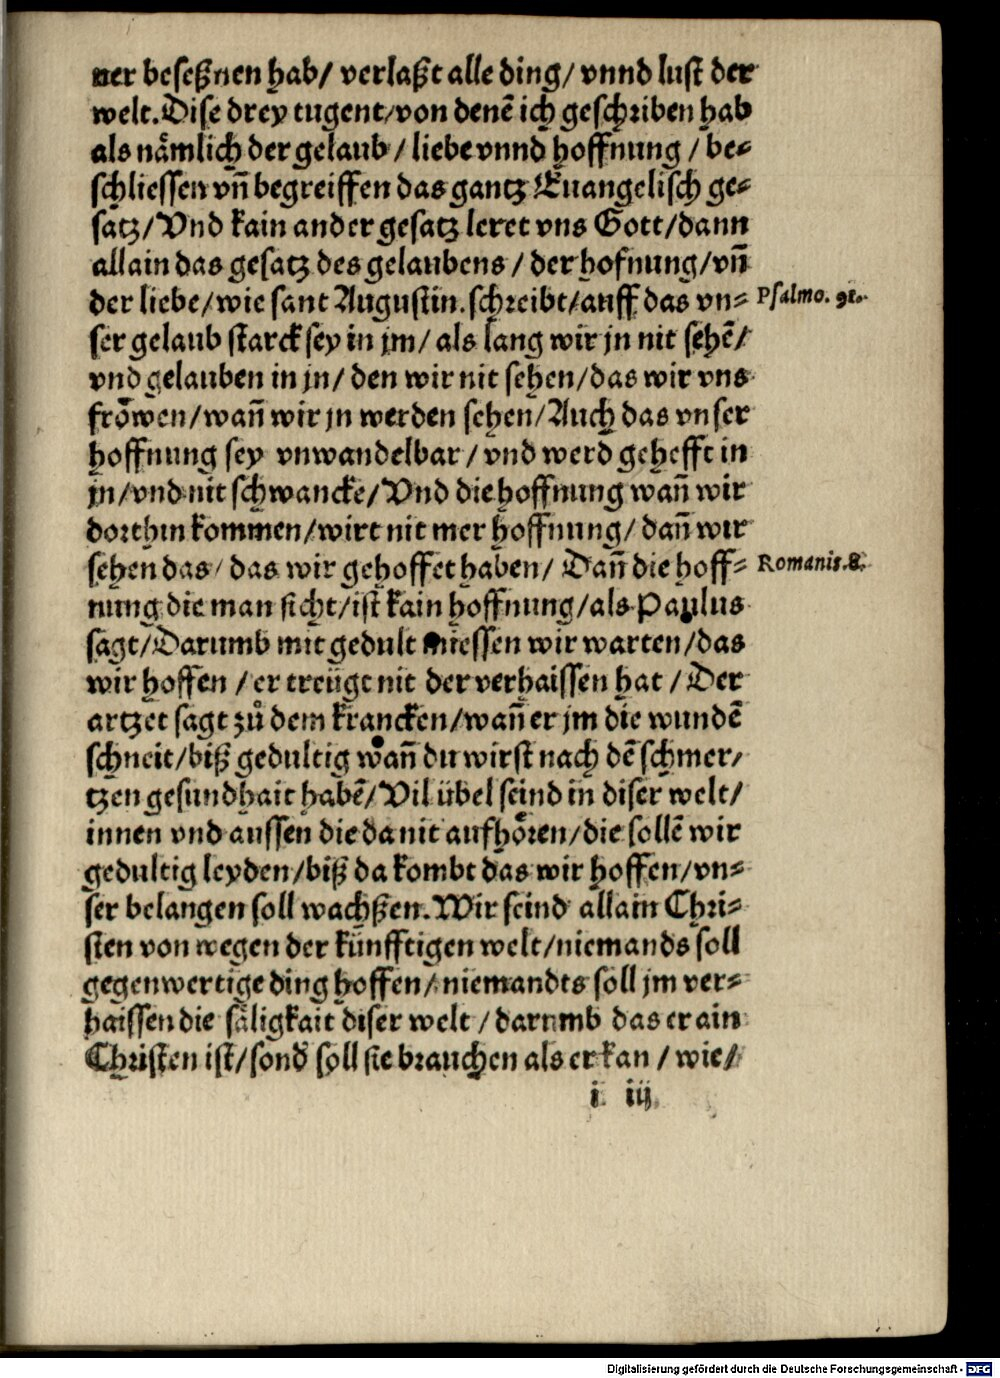 ner beseßnen hab/ verlaßt alle ding/ vnnd lust der
welt. Dise drey tugent/von denē ich geschriben hab
als nämlich der gelaub/ liebe vnnd hoffnung/ be⸗
schliessen vñ begreiffen das gantz Euangelisch ge⸗
satz/Vnd kain ander gesatz leret vns Gott/dann
allain das gesatz des gelaubens/ der hofnung/vñ
der liebe/wie sant Augustin. schreibt/auff das vn⸗ Psalmo. 91.
ser gelaub starck sey in jm/ als lang wir jn nit sehē/
vnd gelauben in jn/ den wir nit sehen/das wir vns
froͤwen/wañ wir jn werden sehen/Auch das vnser
hoffnung sey vnwandelbar/ vnd werd gehefft in
jn/vnd nit schwancke/Vnd die hoffnung wañ wir
dorthin kommen/wirt nit mer hoffnung/ dañ wir
sehen das/ das wir gehoffet haben/ Dañ die hoff⸗ Romanis. 8.
nung die man sicht/ist kain hoffnung/als Paulus
sagt/Darumb mit gedult muͤessen wir warten/das
wir hoffen/ er treügt nit der verhaissen hat/ Der
artzet sagt zů dem krancken/wañ er jm die wundē
schneit/biß gedultig wañ du wirst nach dē schmer/
tzen gesundhait habē/Vil übel seind in diser welt/
innen vnd aussen die da nit aufhoͤren/die sollē wir
gedultig leyden/biß da kombt das wir hoffen/vn⸗
ser belangen soll wachßen. Wir seind allain Chri⸗
sten von wegen der künfftigen welt/niemands soll
gegenwertige ding hoffen/ niemandts soll jm ver⸗
haissen die säligkait diser welt/ darumb das er ain
Christen ist/sond̄ soll sie brauchen als er kan/ wie/
i iij
Digitalisierung gefördert durch die Deutsche Forschungsgemeinschaft - DFG